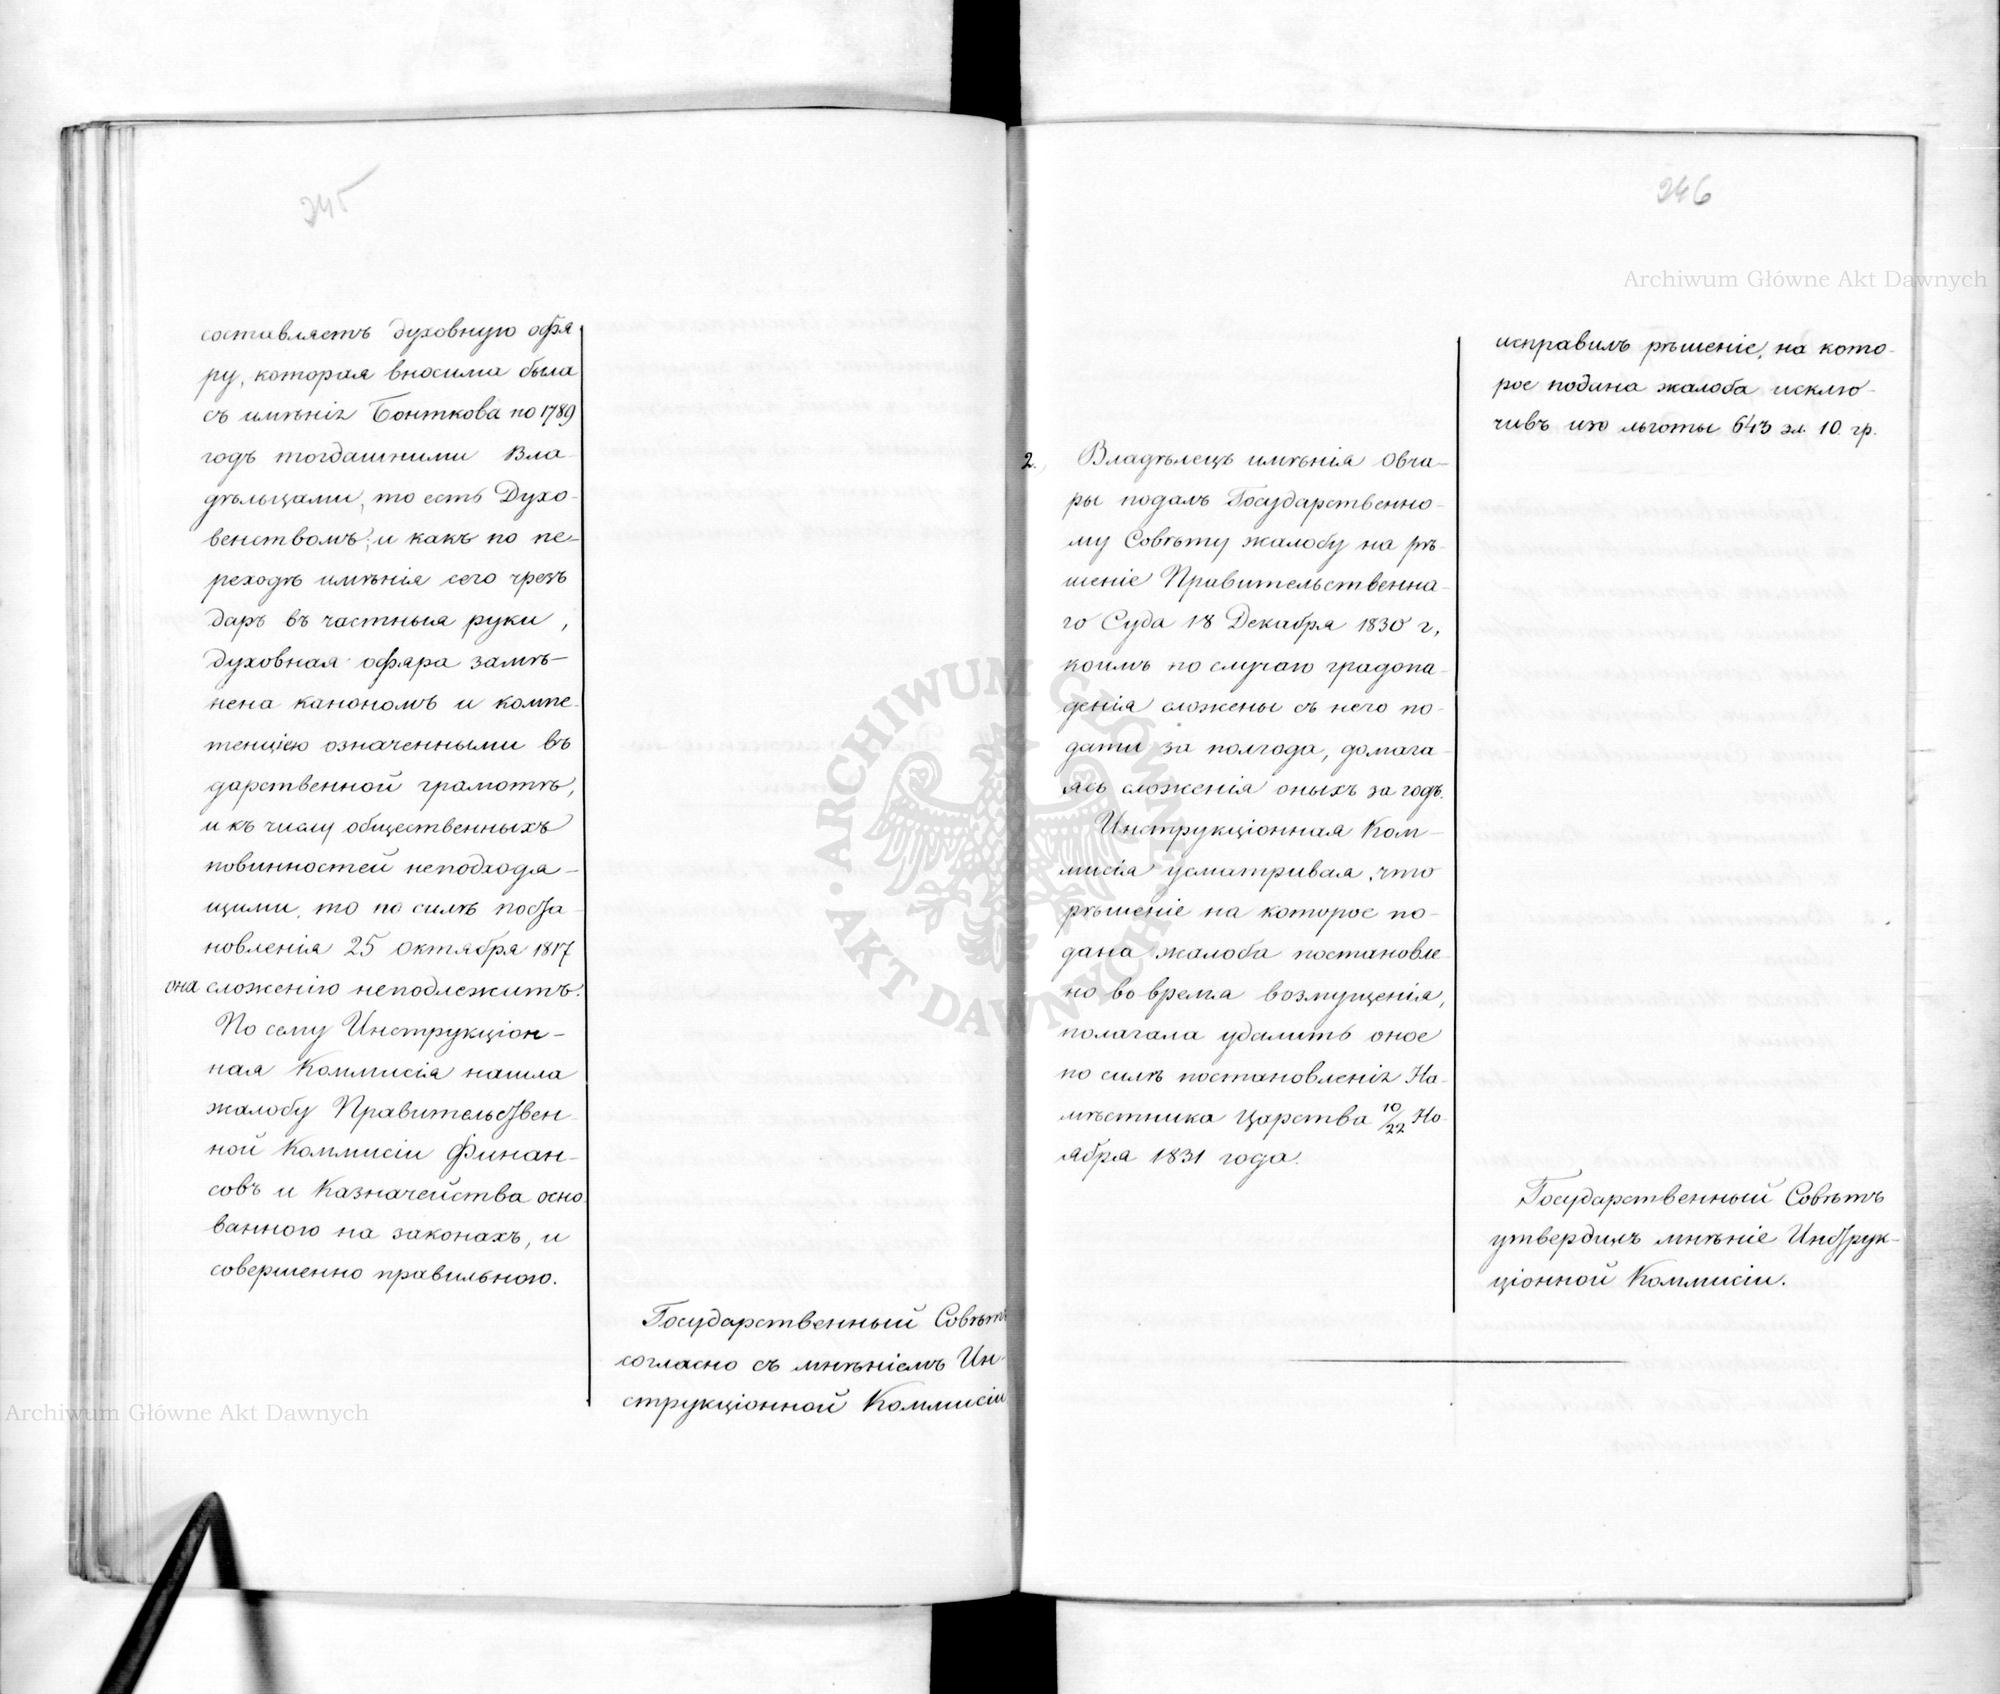 245
составляетъ духовную офя
ру, которая вносима была
съ имѣнія Бонткова по 1789
годъ тогдашними Вла-
дѣльцами, то есть Духо-
венствомъ; и какъ по пе-
реходѣ имѣнія сего чрезъ
даръ въ частныя руки,
духовная офяра замѣ-
нена канономъ и компе-
тенціею означенными въ
дарственной грамотѣ,
и къ числу общественныхъ
повинностей неподходя-
щими, то по силѣ поста-
новленія 25 Октября 1817
она сложенію неподлежитъ.
По сему Инструкціон-
ная Коммисія нашла
жалобу Правительствен-
ной Коммисіи Финан-
совъ и Казначейства осно
ванною на законахъ, и
совершенно правильною.
Государственный Совѣтъ
согласно съ мнѣніемъ Ин-
струкціонной Коммисіи
246
Archiwum Główne Akt Dawnych
исправилъ рѣшеніе, на кото-
рое подана жалоба исклю-
чивъ изъ льготы 643 зл. 10. гр.
2. Владѣлецъ имѣнія Овча-
ры подалъ Государственно-
му Совѣту жалобу на рѣ-
шеніе Правительственна-
го Суда 18 Декабря 1830 г,
коимъ по случаю градопа-
денія сложены съ него по-
дати за полгода, домога-
ясь сложенія оныхъ за годъ.
Инструкціонная Ком-
мисія усматривая, что
рѣшеніе на которое по-
дана жалоба постановле-
но во время возмущенія,
полагала удалить оное
по силѣ постановленія На-
мѣстника Царства 10/22 Но-
ября 1831 года.
Государственный Совѣтъ
утвердилъ мнѣніе Инструк-
ціонной Коммисіи.
ARCHIWUM GŁÓWNE AKT DAWNYCH
Archiwum Główne Akt Dawnych